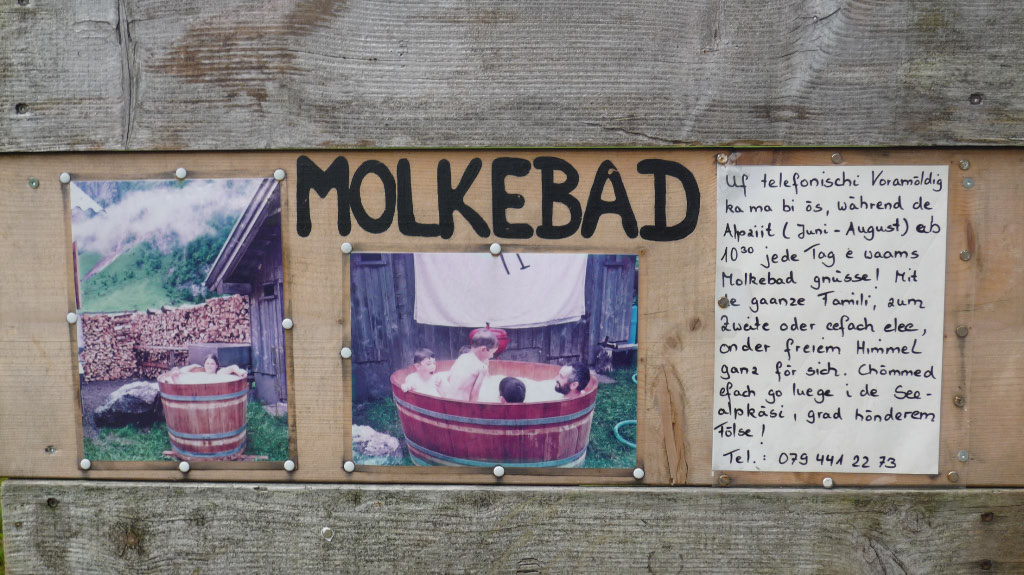 MOLKEBAD
Uf telefonischi Voramöldig
ka ma bi ös, während de
Alpziit (Juni - August) ab
10³⁰ jede Tag e waams
Molkebad gnüsse! Mit
de gaanze Famili, zum
Zweite oder eefach elee,
onder freiem Himmel
ganz för sich. Chömmed
efach go luege i de See-
alpkäsi, grad hönderem
Fölse!
Tel.: 079 441 22 73